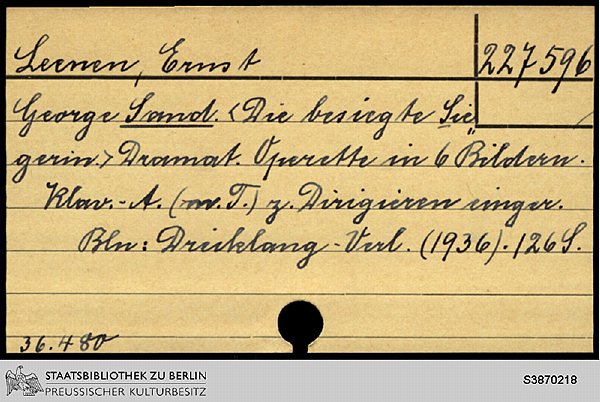 Leenen, Ernst
227 596
George Sand. <Die besiegte Sie„
gerin.> Dramat. Operette in 6 Bildern.
Klav.-A. (m. T.) z. Dirigieren einger.
Bln: Dreiklang-Verl. (1936). 126 S.
36.480
STAATSBIBLIOTHEK ZU BERLIN
PREUSSISCHER KULTURBESITZ
S3870218